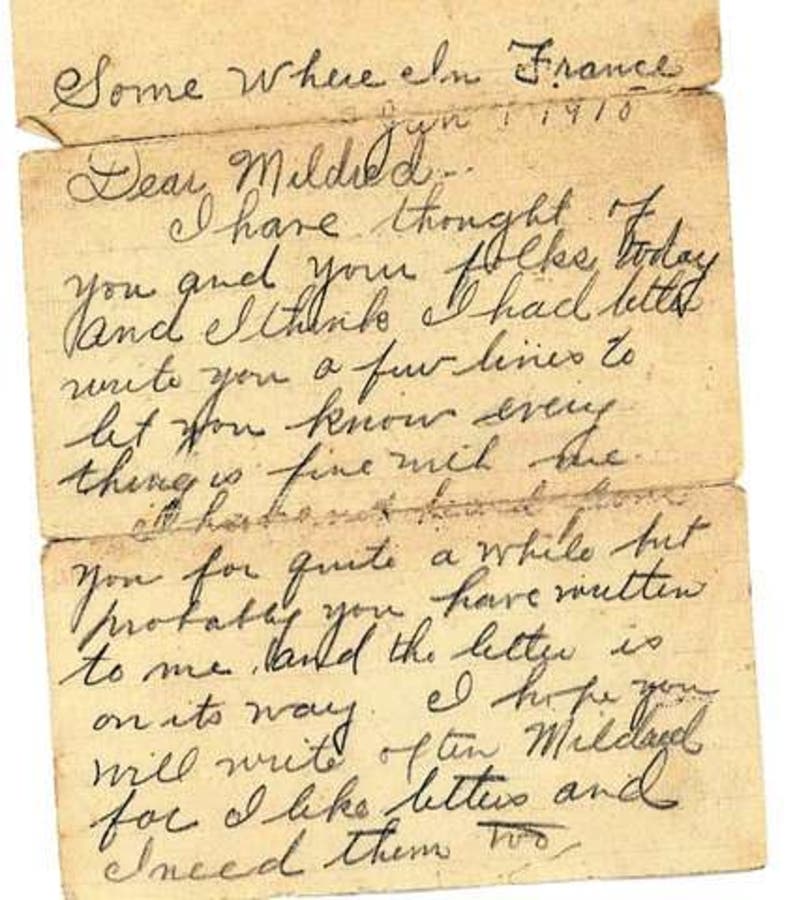 Some Where In France
Jun
Dear Mildred--
I have thought of
you and your folks today
and I think I had better
write you a few lines to
let you know every
thing is fine with me.
I have not heard from
you for quite a while but
probably you have written
to me, and the letter is
on its way. I hope you
will write often Mildred
for I like letters and
I need them too